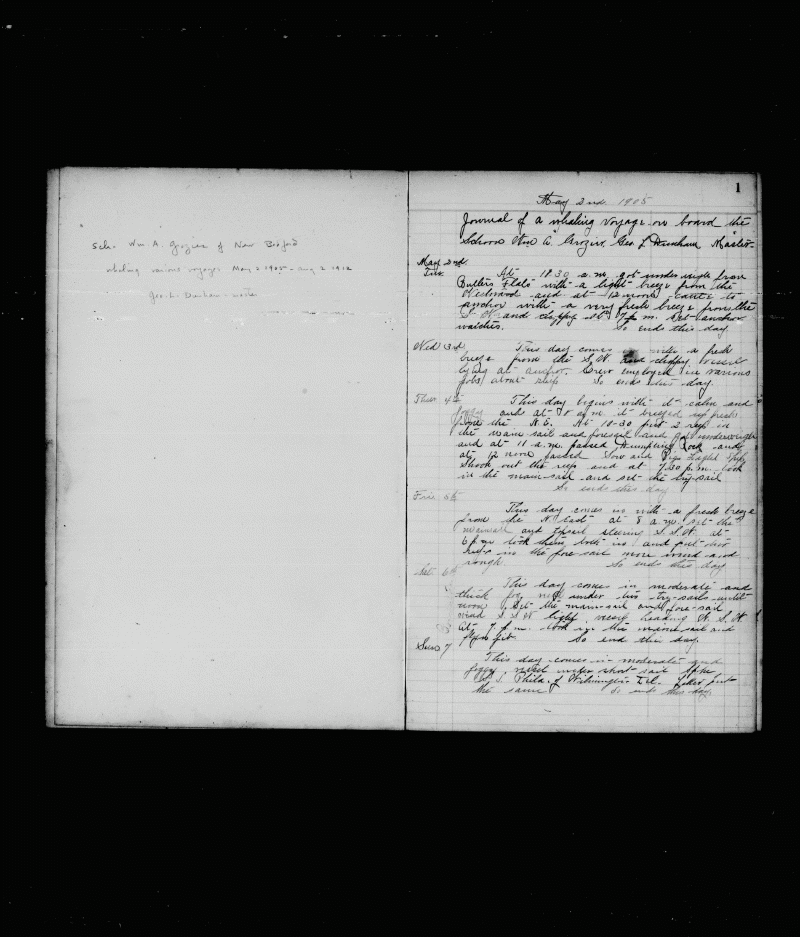 Sch. Wm. A. Grozier of New Bedford
whaling various voyages May 2 1905 - Aug 2 1912
Geo. L. Dunham - master
1
May 2nd 1905
Journal of a whaling voyage on board the
Schoon Wm A. Grozier Geo L Dunham Master
May 2nd
Tue. At 10.30 a.m. got underweigh from
Butlers Flats with a light breeze from the
Westward and at 12 noon came to
anchor with a very fresh breeze from the
S. W. and choppy At 7 p.m. set anchor
watches. So ends this day
Wed 3rd This day comes in with a fresh
breeze from the S.W. and choppy vessel
lying at anchor. Crew employed in various
jobs about ship So ends this day.
Thur 4th This day begins with it calm and
foggy and at 8 a.m. it breezed up fresh
from the N.E. At 10-30 put 2 reefs in
the main sail and foresail and got underweigh
and at 11 a.m. passed Dumpling Rock and
at 12 noon passed Sow and Pigs Light Ship
Shook out the reefs and at 7.30 p.m. took
in the main-sail and set the try-sail
So ends this day
Fri 5th
This day comes in with a fresh breeze
from the N. East at 8 a.m. set the
mainsail and steering S.S.W. at
6 p.m. took them both in and put two
reefs in the fore-sail more wind and
rough. So ends this day
Sat 6th
This day comes in moderate and
thick fog under try-sails until
noon. Set the main-sail and fore-sail
wind S.S.W light heading W.S.W
At 7 p.m. took in the main-sail and
So end this day.
Sun 7
This day comes in moderate and
foggy under short sail
S. Phila. of Wilmington Del.
the same So ends this day.